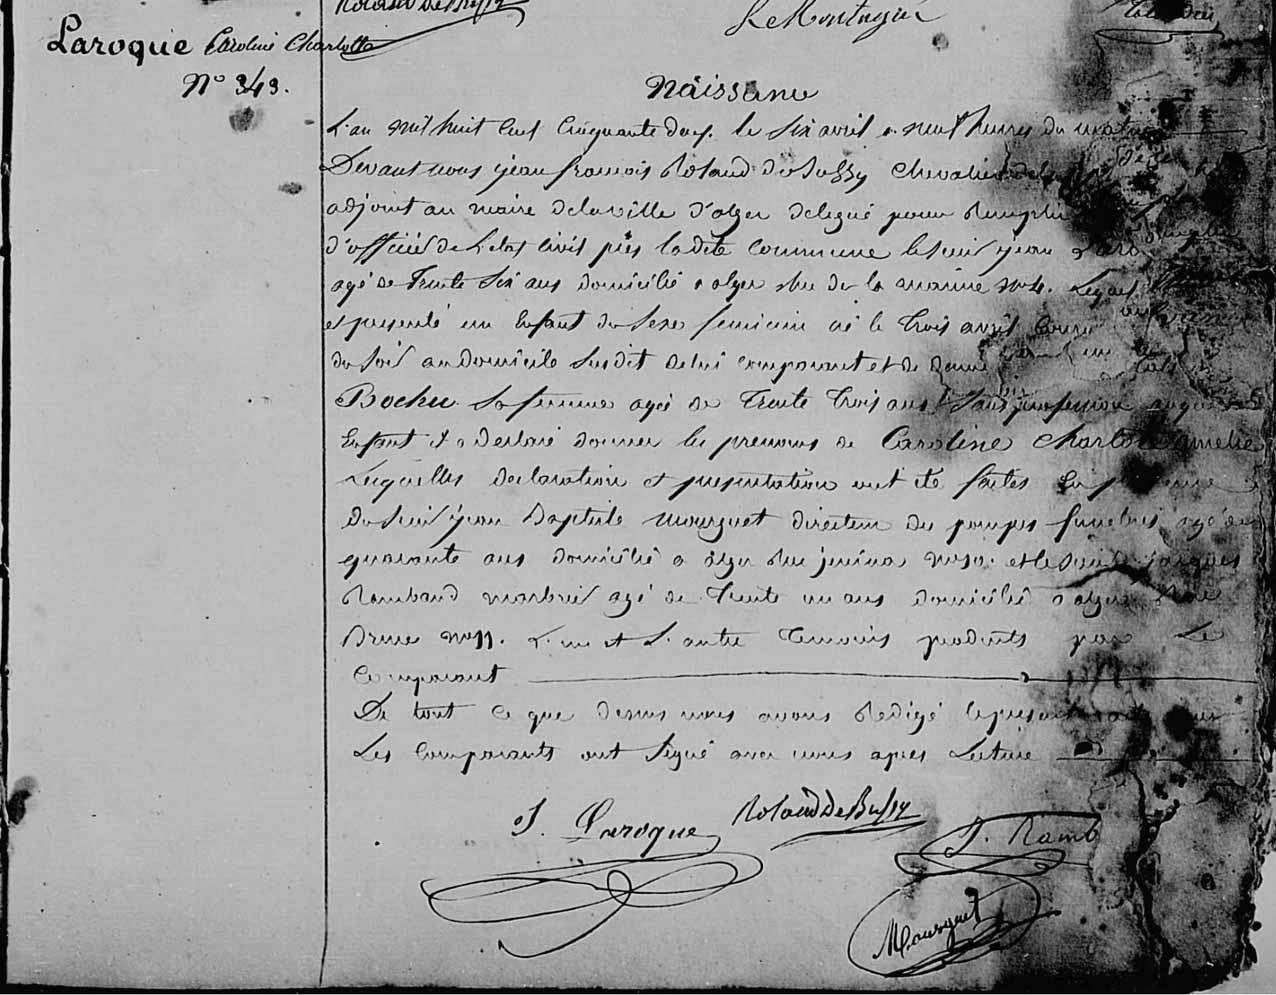 Roland De Bussy
Le Montagnier
Laroque Caroline Charlotte
N° 343.
Naissance
L'an mil huit cent cinquante deux. le Six avril a neuf heures du matin
Devant nous jean francois Roland de Bussy Chevalier de la
adjoint au maire de la ville d'alger delegué pour Remplir
d'officier de L'etat Civil près ladite Commune le Sieur jean
agé de Trente Six ans domicilié a alger Rue de la marine N° 4. Lequel
et presenté un Enfant du Sexe feminin né le Trois avril Courant
du Soir au domicile Susdit de lui comparant et de dame
Bocher Sa femme agée de Trente Trois ans Sans profession auquel
Enfant il a declaré donner les prenoms de Caroline Charlotte amelie
Lesquelles declaration et presentation ont été faites En presence
du Sieur jean Baptiste Mourguet directeur des pompes funebres agé de
quarante ans domicilié a alger Rue jenina N° 10. et le Sieur jacques
Rambaud marbrier agé de Trente un ans domicilié a alger Rue
Bruce N° 11. L'un et L'autre Temoins produits par Le
Comparant
De tout Ce que dessus nous avons Redigé le present acte que
Les Comparants ont Signé avec nous apres Lecture
J. Laroque
Roland De Bussy
J. Ramb
Mourguet